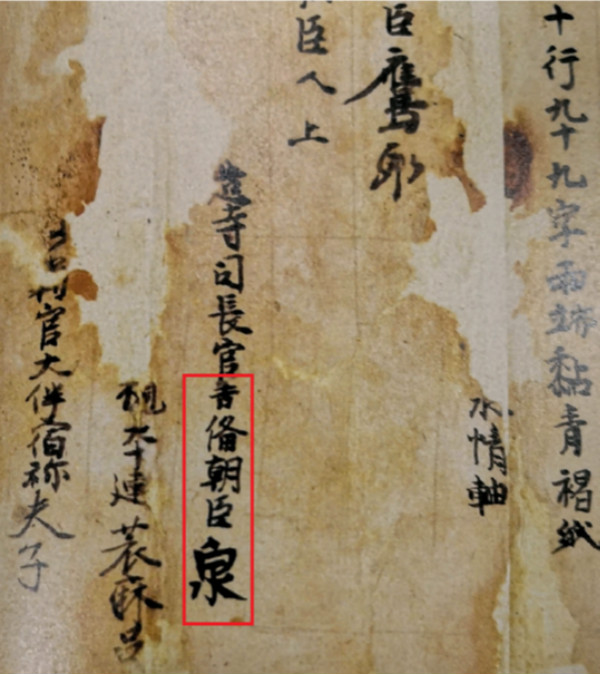 十行九十九字兩端黏青褐紙
水精軸
臣鷹取
臣人上
造寺司長官吉備朝臣泉
麻呂
判官大伴宿祢夫子